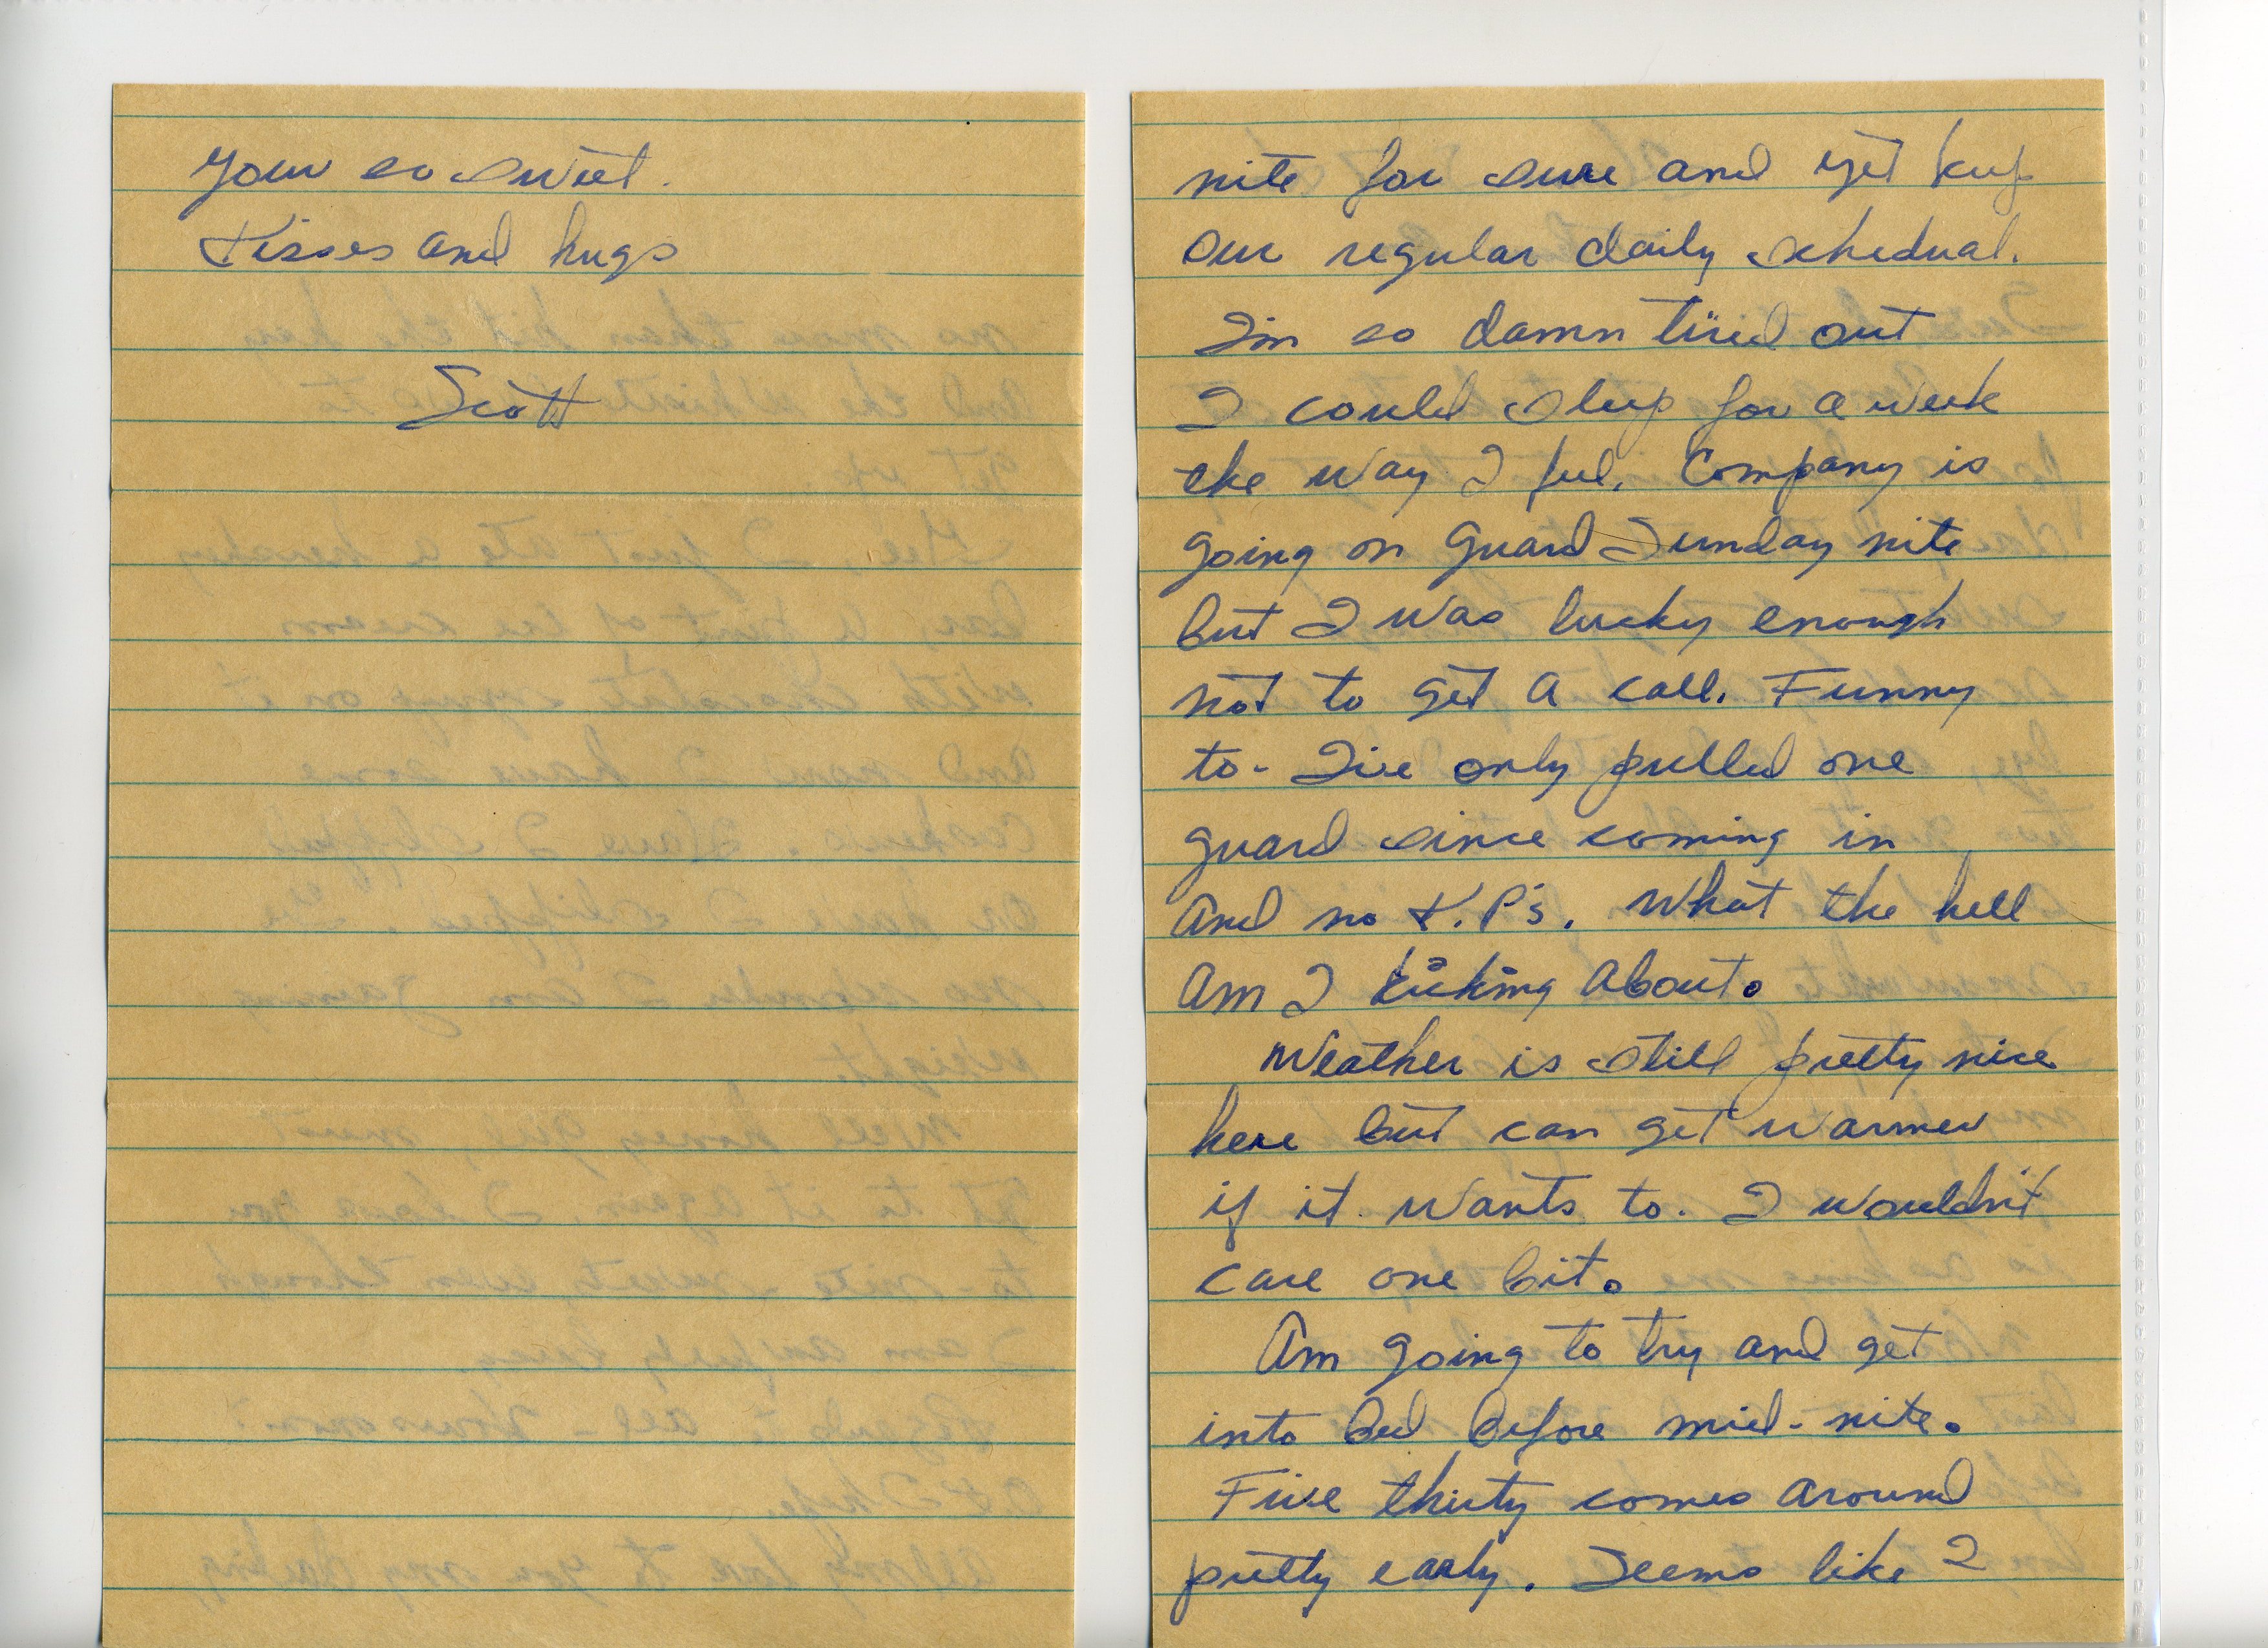 your so sweet.
Kisses and hugs
Scott
nite for sure and yet keep
our regular daily schedual.
I'm so damn tired out
I could sleep for a week
the way I feel. Company is
going on guard Sunday nite
but I was lucky enough
not to get a call. Funny
to- I've only pulled one
guard since coming in
and no K.P's. What the hell
am I kicking about.
Weather is still pretty nice
here but can get warmer
if it wants to. I wouldn't
care one bit.
Am going to try and get
into bed before mid-nite.
Five thirty comes around
pretty early. Seems like I